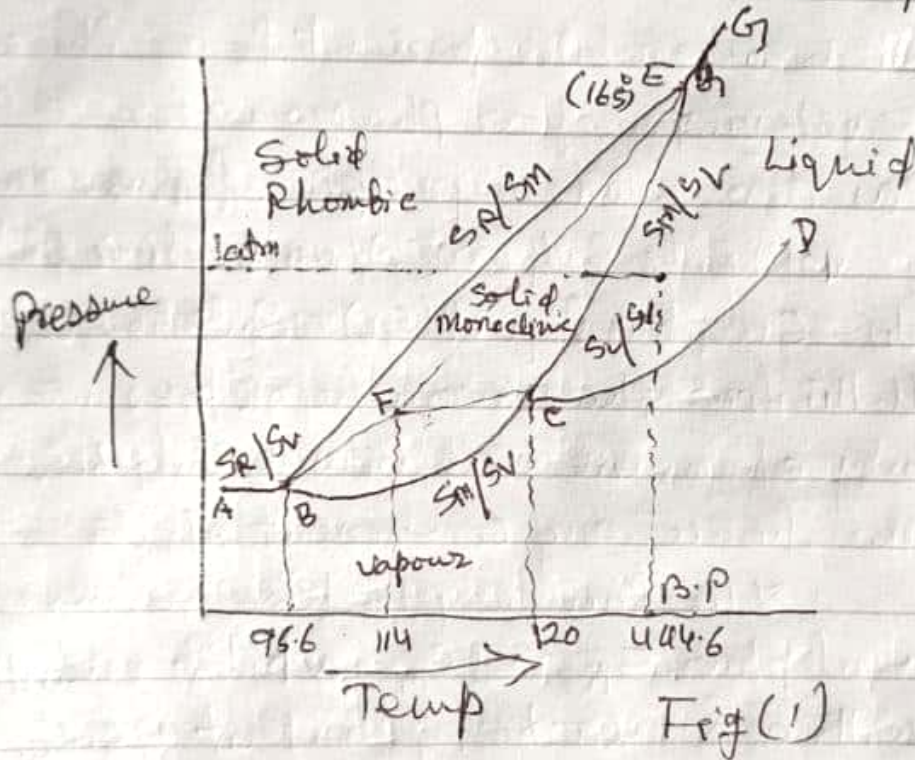 G
(165° E
Solid
Rhombic
SR/SM
SM/SV
Liquid
D
1atm
Pressure
Solid
Monoclinic
SV/SL
F
C
SR/SV
A
B
SM/SV
vapour
B.P
95.6 114 120 444.6
Temp
Fig (1)